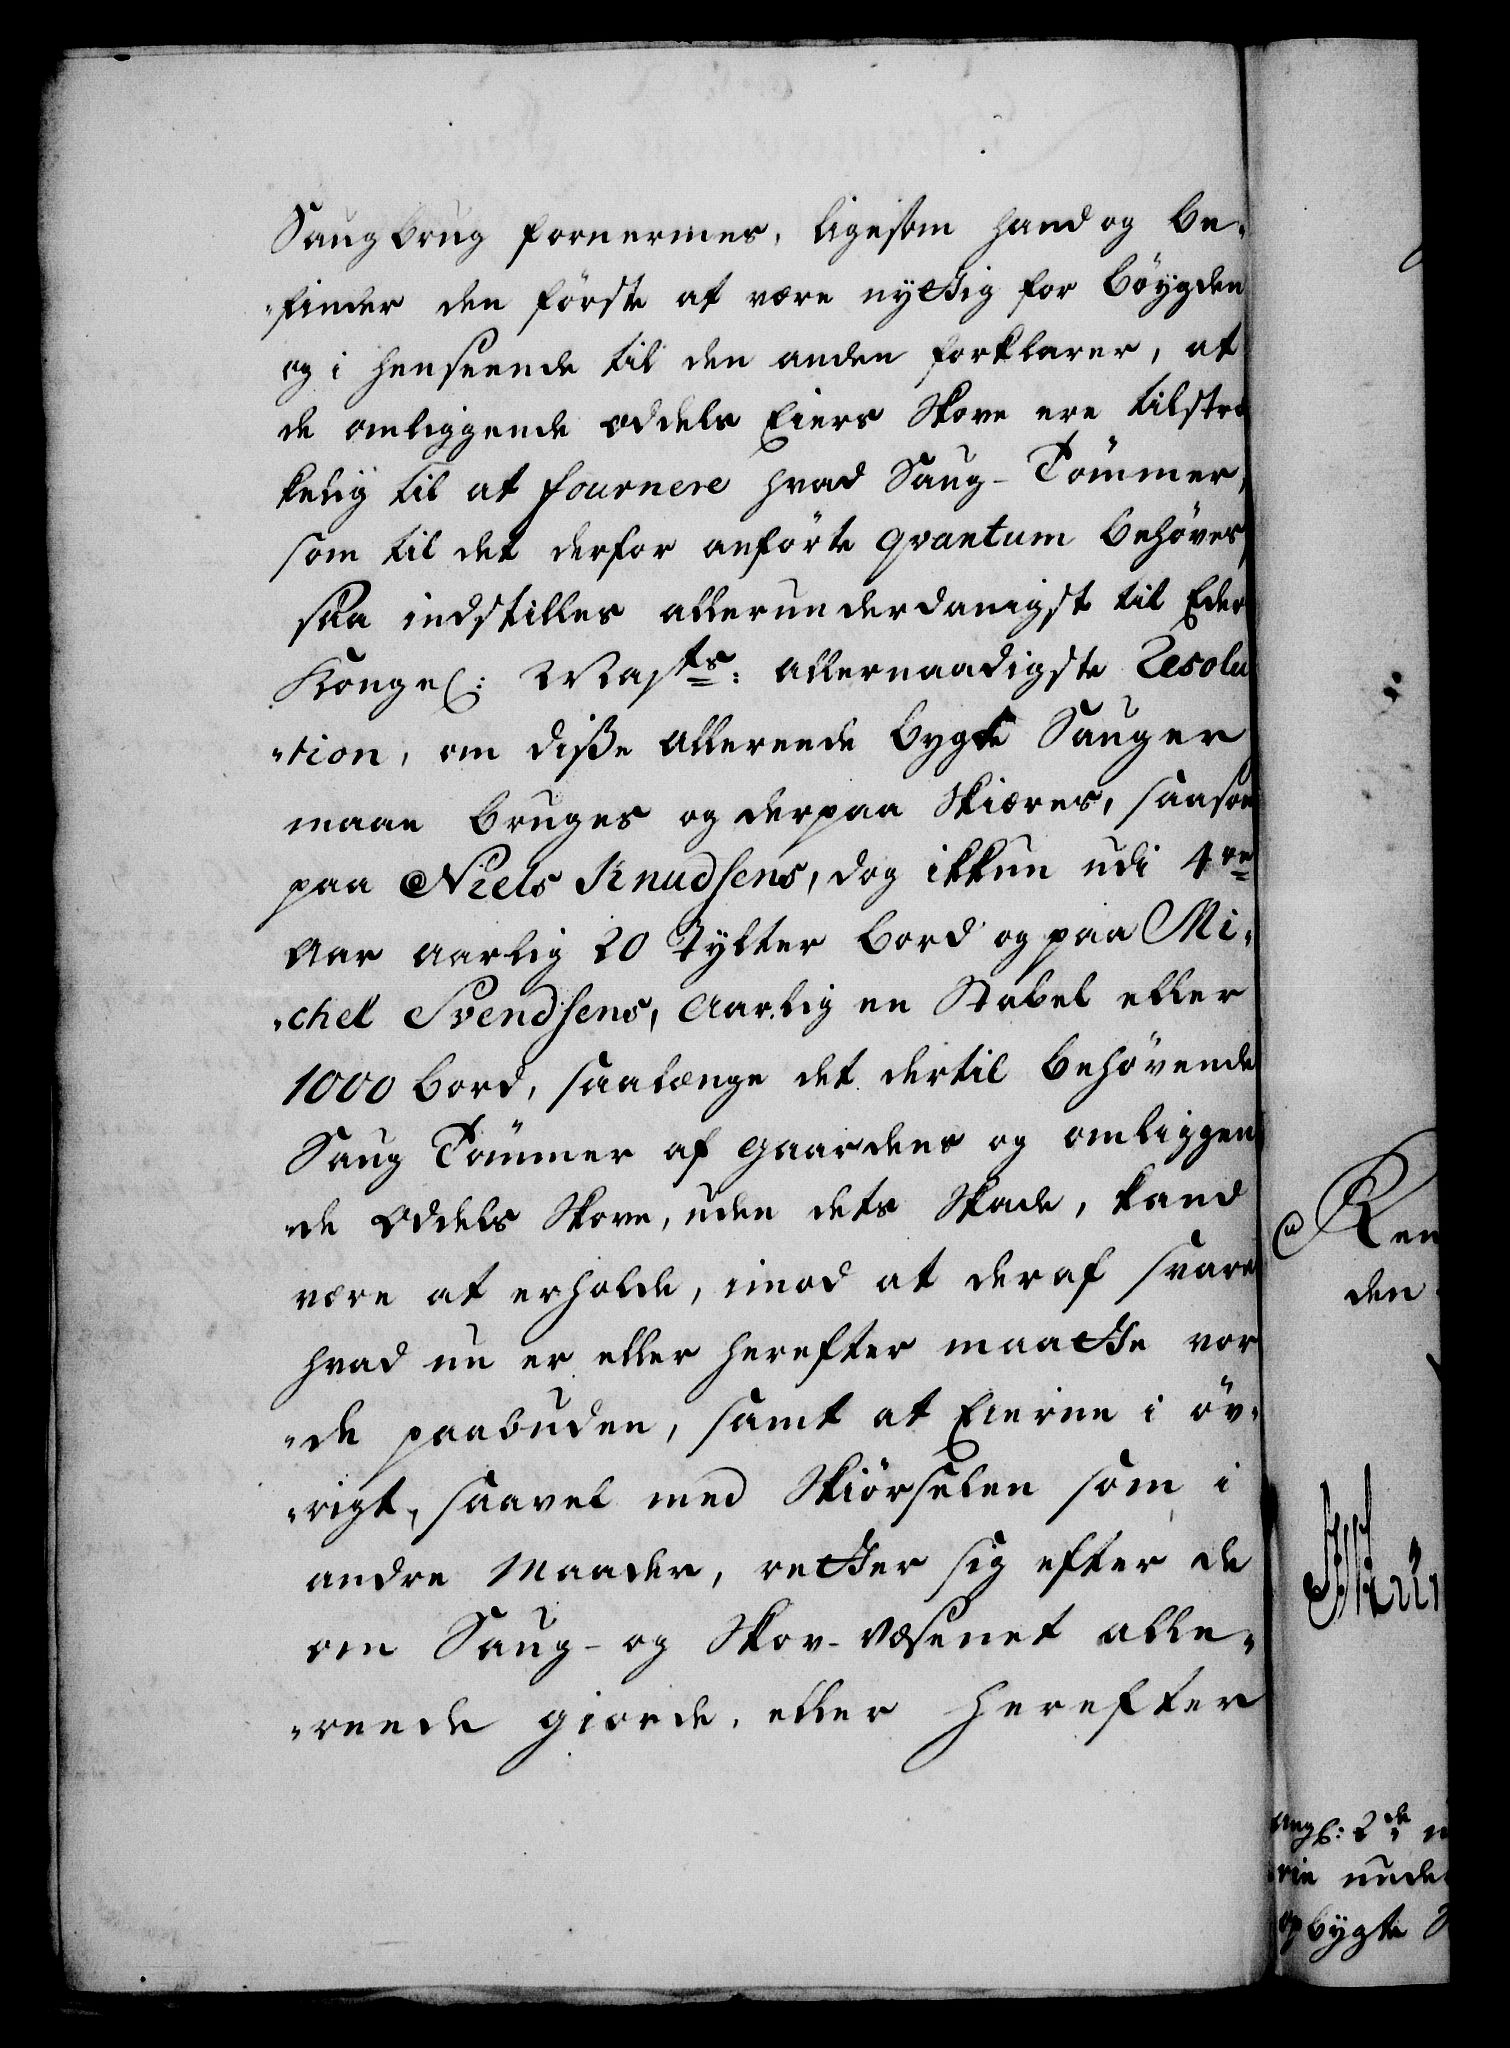 Saugbrug fornermes, ligesom hand og be-
-finder den förste at være nyttig for böygden
og i henseende til den anden forklarer, at
de omliggende Oddels Eiers Skove ere tilstræ
kelig til at fournere hvad Saug-Tömmer,
som til det derfor anförte qvantum behöves,
saa indstilles allerunderdanigst til Eder
Kongel: Mayts: allernaadigste Resolu
-tion, om disse allereede bygte Sauger
maae bruges og derpaa Skiæres, saasom
paa Niels Knudsens, dog ikkun udi 4re
Aar aarlig 20 Tylter bord og paa Mi-
-chel Svendsens, Aarlig en Stabel eller
1000 bord, saalænge det dertil behövende
Saug Tömmer af Gaardens og omliggen
-de Oddels Skove, uden dets Skade, kand
være at erholde, imod at deraf svare
hvad nu er eller herefter maatte vor
-de paabuden, samt at Eierne i öv-
-rigt, saavel med Skiörselen som i
andre Maader, retter sig efter de
om Saug- og Skov-Væsenet alle-
-reede giorde, eller herefter
Ren
den
Angl: 2de
rie unde
opbygte S